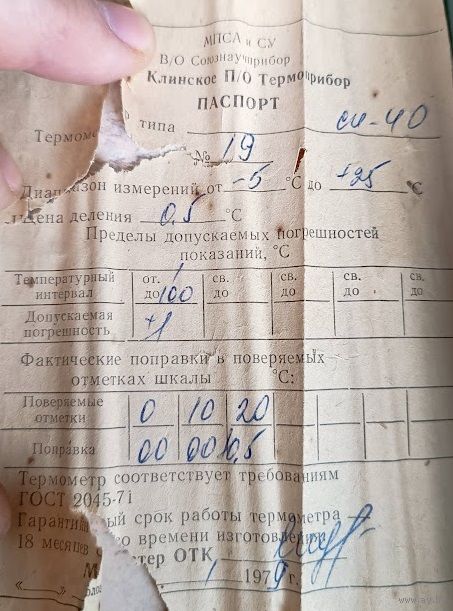 МПСА и СУ
В/О Союзнаучприбор
Клинское П/О Термоприбор
ПАСПОРТ
Термом р типа СП-40
№ 19
Диапазон измерений от -5 °С до +25 °С
Цена деления 0,5 °С
Пределы допускаемых погрешностей
показаний, °С
Температурный интервал от. до 100 св. до св. до св. до св. до
Допускаемая погрешность ±1
Фактические поправки в поверяемых
отметках шкалы °С:
Поверяемые отметки 0 10 20
Поправка 00 00 0,5
Термометр соответствует требованиям
ГОСТ 2045-71
Гарантийный срок работы термометра
18 месяцев со времени изготовления
М стер ОТК
« » 1 1979 г.
www.ay.